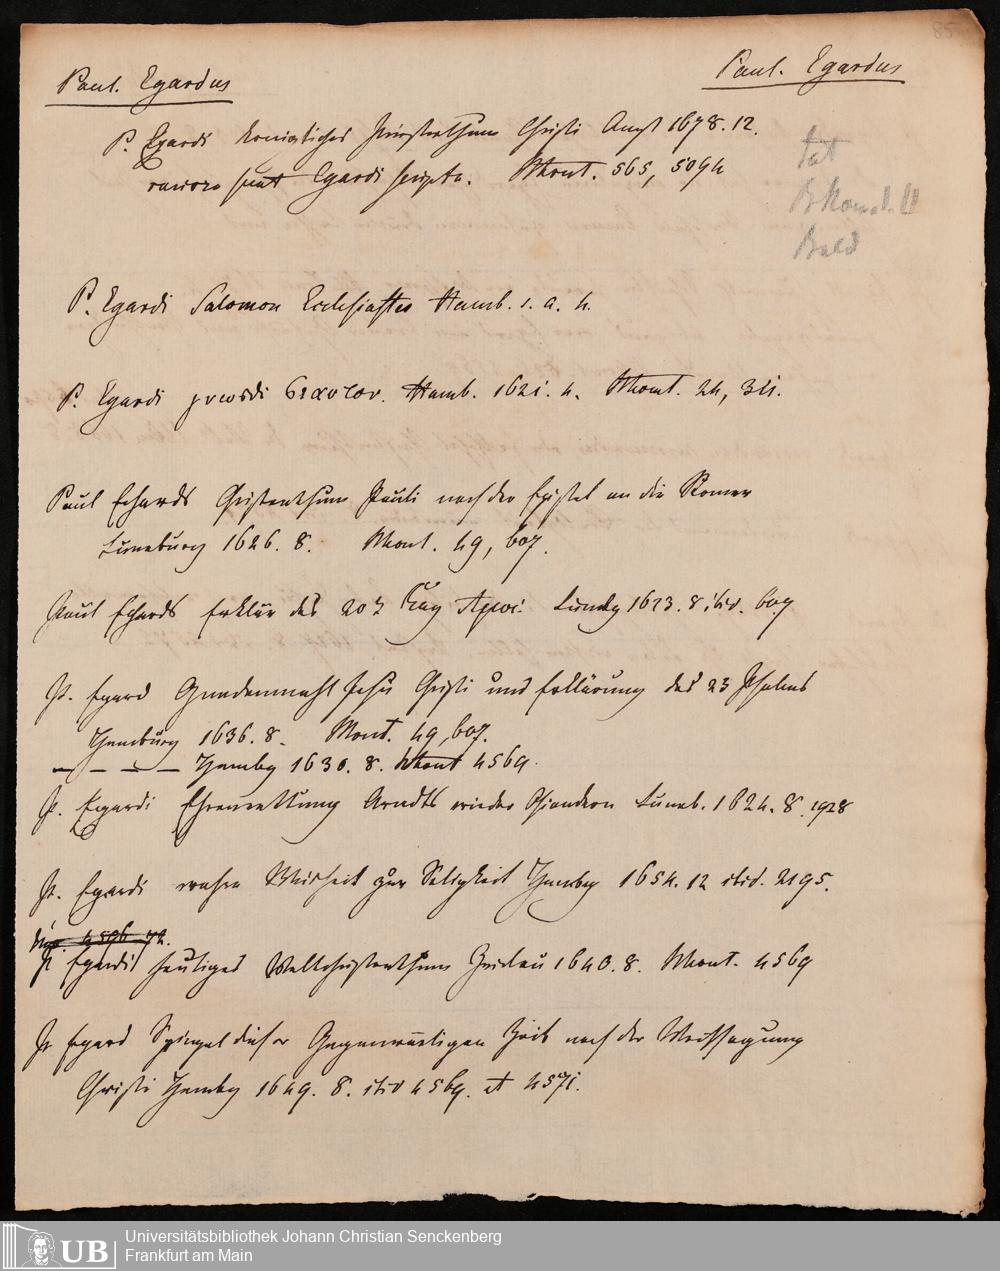 85
Paul. Egardus
Paul. Egardus
P. Egardi königliches Priesterthum Christi Augs 1678. 12.
rariora sunt Egardi scripta. Mout. 565, 5094
tat
Bald
P. Egardi Salomon Ecclesiastes Hamb. s. a. 4.
P. Egardi γνωθι σεαυτον. Hamb. 1621. 4. Mout. 24,
Paul Echards Christenthum Pauli nach der Epistel an die Römer
Lüneburg 1626. 8. Mout. 49, 607.
Paul Echards Erklär des 20 Cap Apoc. Lünebg 1623. 8. ibid. 607
P. Egard Gnadenmahl Jesu Christi und Erklärung des 23 Psalms
Hamburg 1636. 8. Mout. 49, 607.
— — — — Hambg 1630. 8. Mout 4569.
P. Egardi Ehrenrettung Arndts wieder Osiandern Lüneb. 1624. 8. 1928
P. Egardi wahre Weisheit zur Seligkeit Hambg 1654. 12 ibid. 2195.
P Egardi heutiges Weltchristenthum 1640. 8. Mout. 4569
P Egard Spiegel dieser Gegenwärtigen Zeit nach der Weissagung
Christi Hambg 1649. 8. ibid 4569. et 4571.
UB
Universitätsbibliothek Johann Christian Senckenberg
Frankfurt am Main